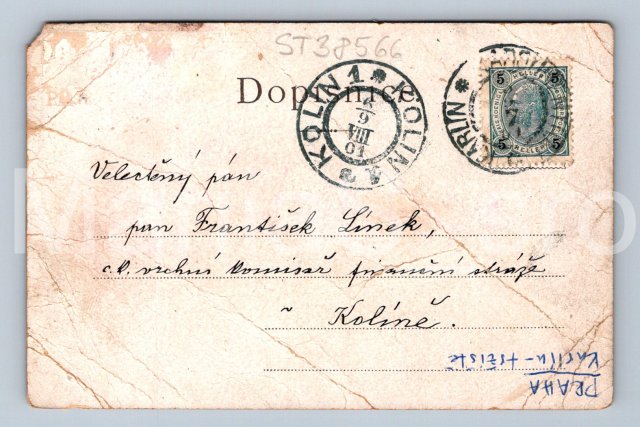 ST38566
Dopisnice
KOLIN 1 * KOLIN 1
6
VIII
01
KARLIN *
5 5
5 5
Velectěný pán
pan František Línek,
c. k. vrchní komisař finanční stráže
v Kolíně.
PRAHA
Karlín - tržiště